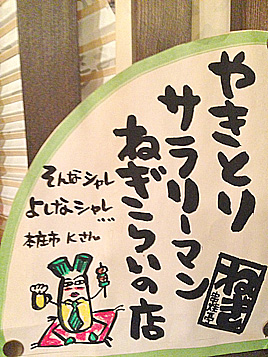 やきとり
サラリーマン
ねぎらいの店
そんなシャレ
よしなシャレ…
本庄市 Kさん